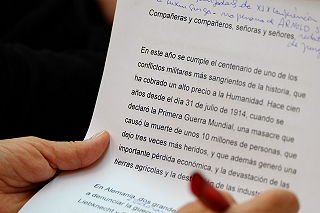 Compañeras y compañeros, señoras y señores,
En este año se cumple el centenario de uno de los
conflictos militares más sangrientos de la historia, que
ha cobrado un alto precio a la Humanidad. Hace cien
años desde el día 31 de julio de 1914, cuando se
declaró la Primera Guerra Mundial, una masacre que
causó la muerte de unos 10 millones de personas, que
dejo tres veces más heridos, y que además generó una
importante pérdida económica, y la devastación de las
tierras agrícolas y la
de las
En Alemania, dos
a denunciar la
Liebknecht